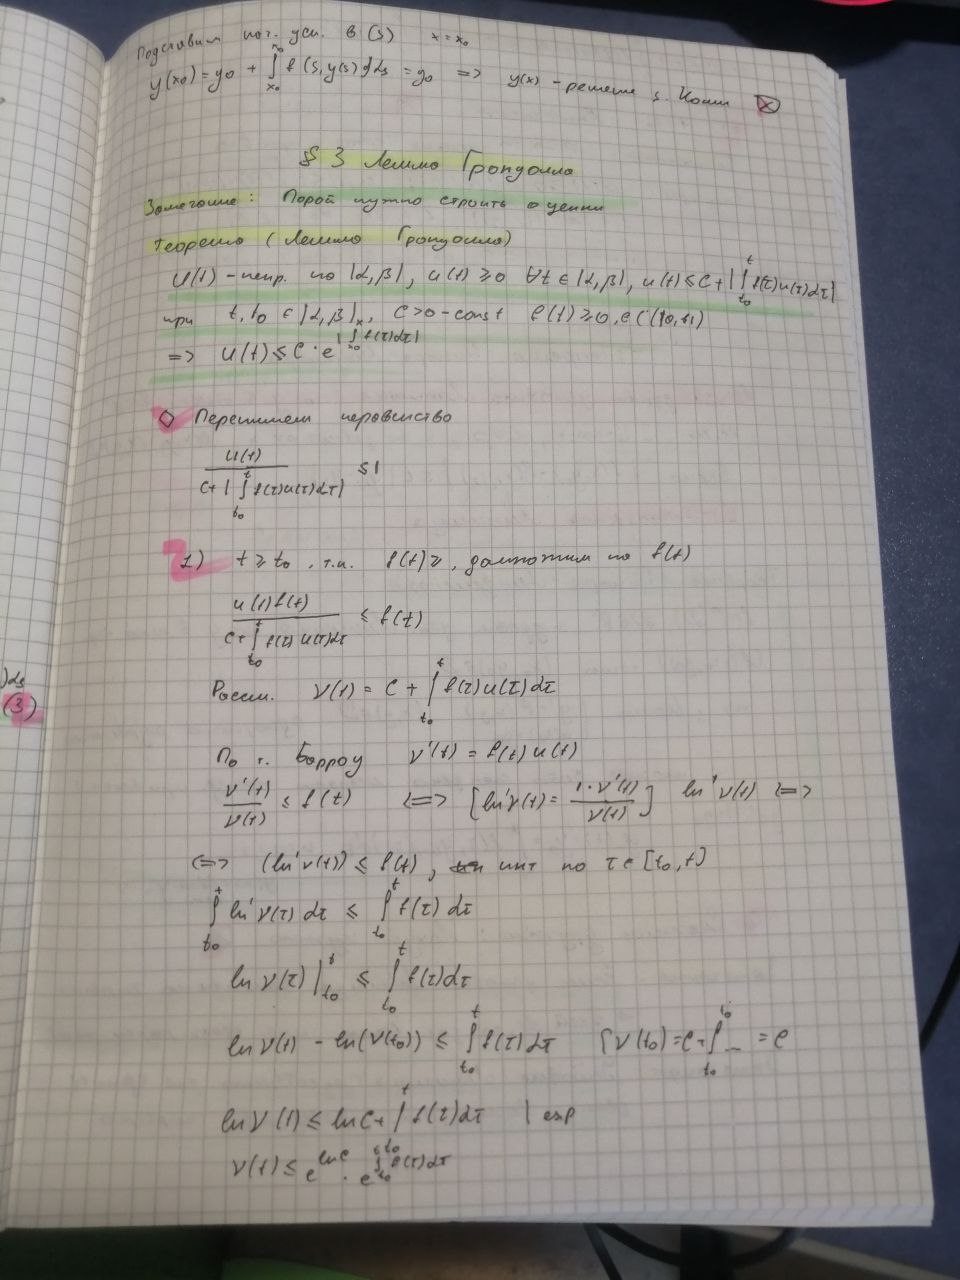 Подставим нач. усл. в (3) x = x₀
y(x₀) = y₀ + ∫_{x₀}^{x₀} f(s, y(s)) ds = y₀ => y(x) – решение з. Коши
§ 3 Лемма Гронуолла
Замечание: Порой нужно строить оценки
Теорема (Лемма Гронуолла)
U(t) – непр. на |α, β|, u(t) ≥ 0 ∀t ∈ |α, β|, u(t) ≤ C + |∫_{t₀}^{t} f(τ)u(τ)dτ|
при t, t₀ ∈ |α, β|, C > 0 – const f(t) ≥ 0, ∈ C
=> u(t) ≤ C · e^{|∫_{x₀}^{x} f(τ)dτ|}
◇ Перепишем неравенство
u(t) / (C + |∫_{t₀}^{t} f(τ)u(τ)dτ|) ≤ 1
1) t ≥ t₀, т.к. f(t) ≥, домножим на f(t)
u(t)f(t) / (C + ∫_{t₀}^{t} f(τ) u(τ)dτ) ≤ f(t)
Рассм. v(t) = C + ∫_{t₀}^{t} f(τ)u(τ)dτ
По т. Барроу v'(t) = f(t) u(t)
v'(t) / v(t) ≤ f(t) <=> [ln' v(t) = 1·v'(t) / v(t)] ln' v(t) <=>
<=> (ln' v(t)) ≤ f(t), инт по τ ∈ [t₀, t]
∫_{t₀}^{t} ln' v(τ) dτ ≤ ∫_{t₀}^{t} f(τ) dτ
ln v(τ) |_{t₀}^{t} ≤ ∫_{t₀}^{t} f(τ)dτ
ln v(t) – ln(v(t₀)) ≤ ∫_{t₀}^{t} f(τ)dτ [v(t₀) = C + ∫_{t₀}^{t₀} ... = C
ln v(t) ≤ ln C + ∫^{t} f(τ)dτ | exp
v(t) ≤ e^{ln C} · e^{∫_{t₀} f(τ)dτ}
)ds
(3)